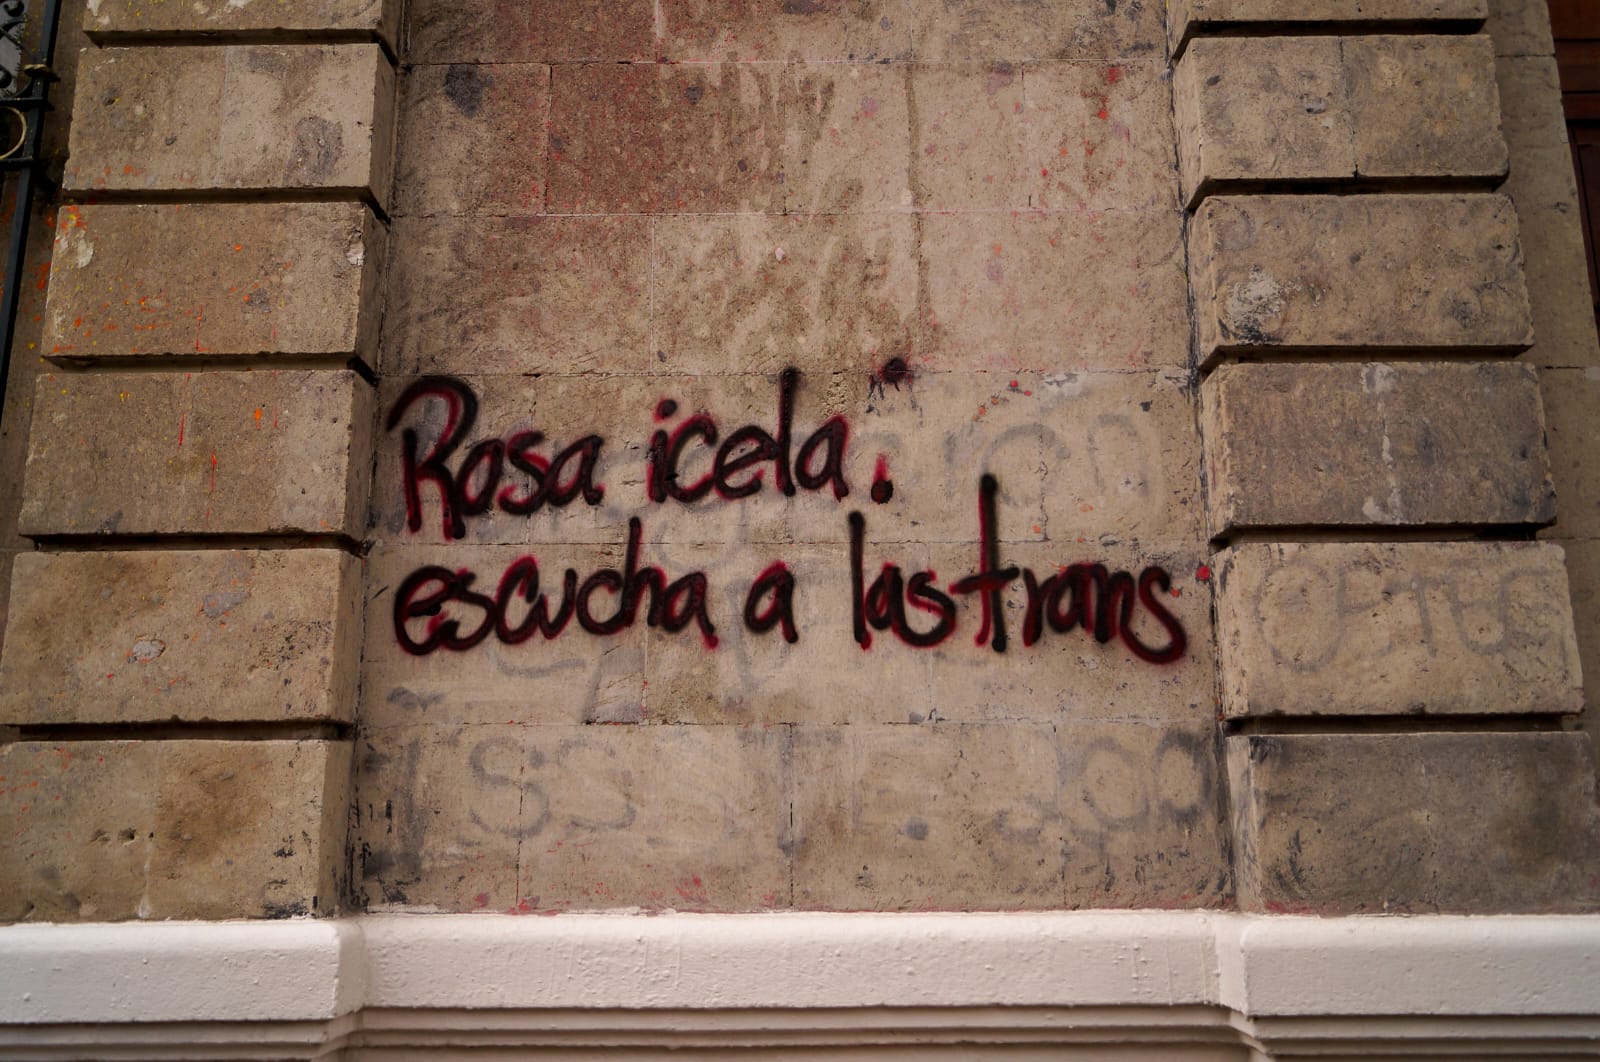 Rosa icela:
escucha a las trans